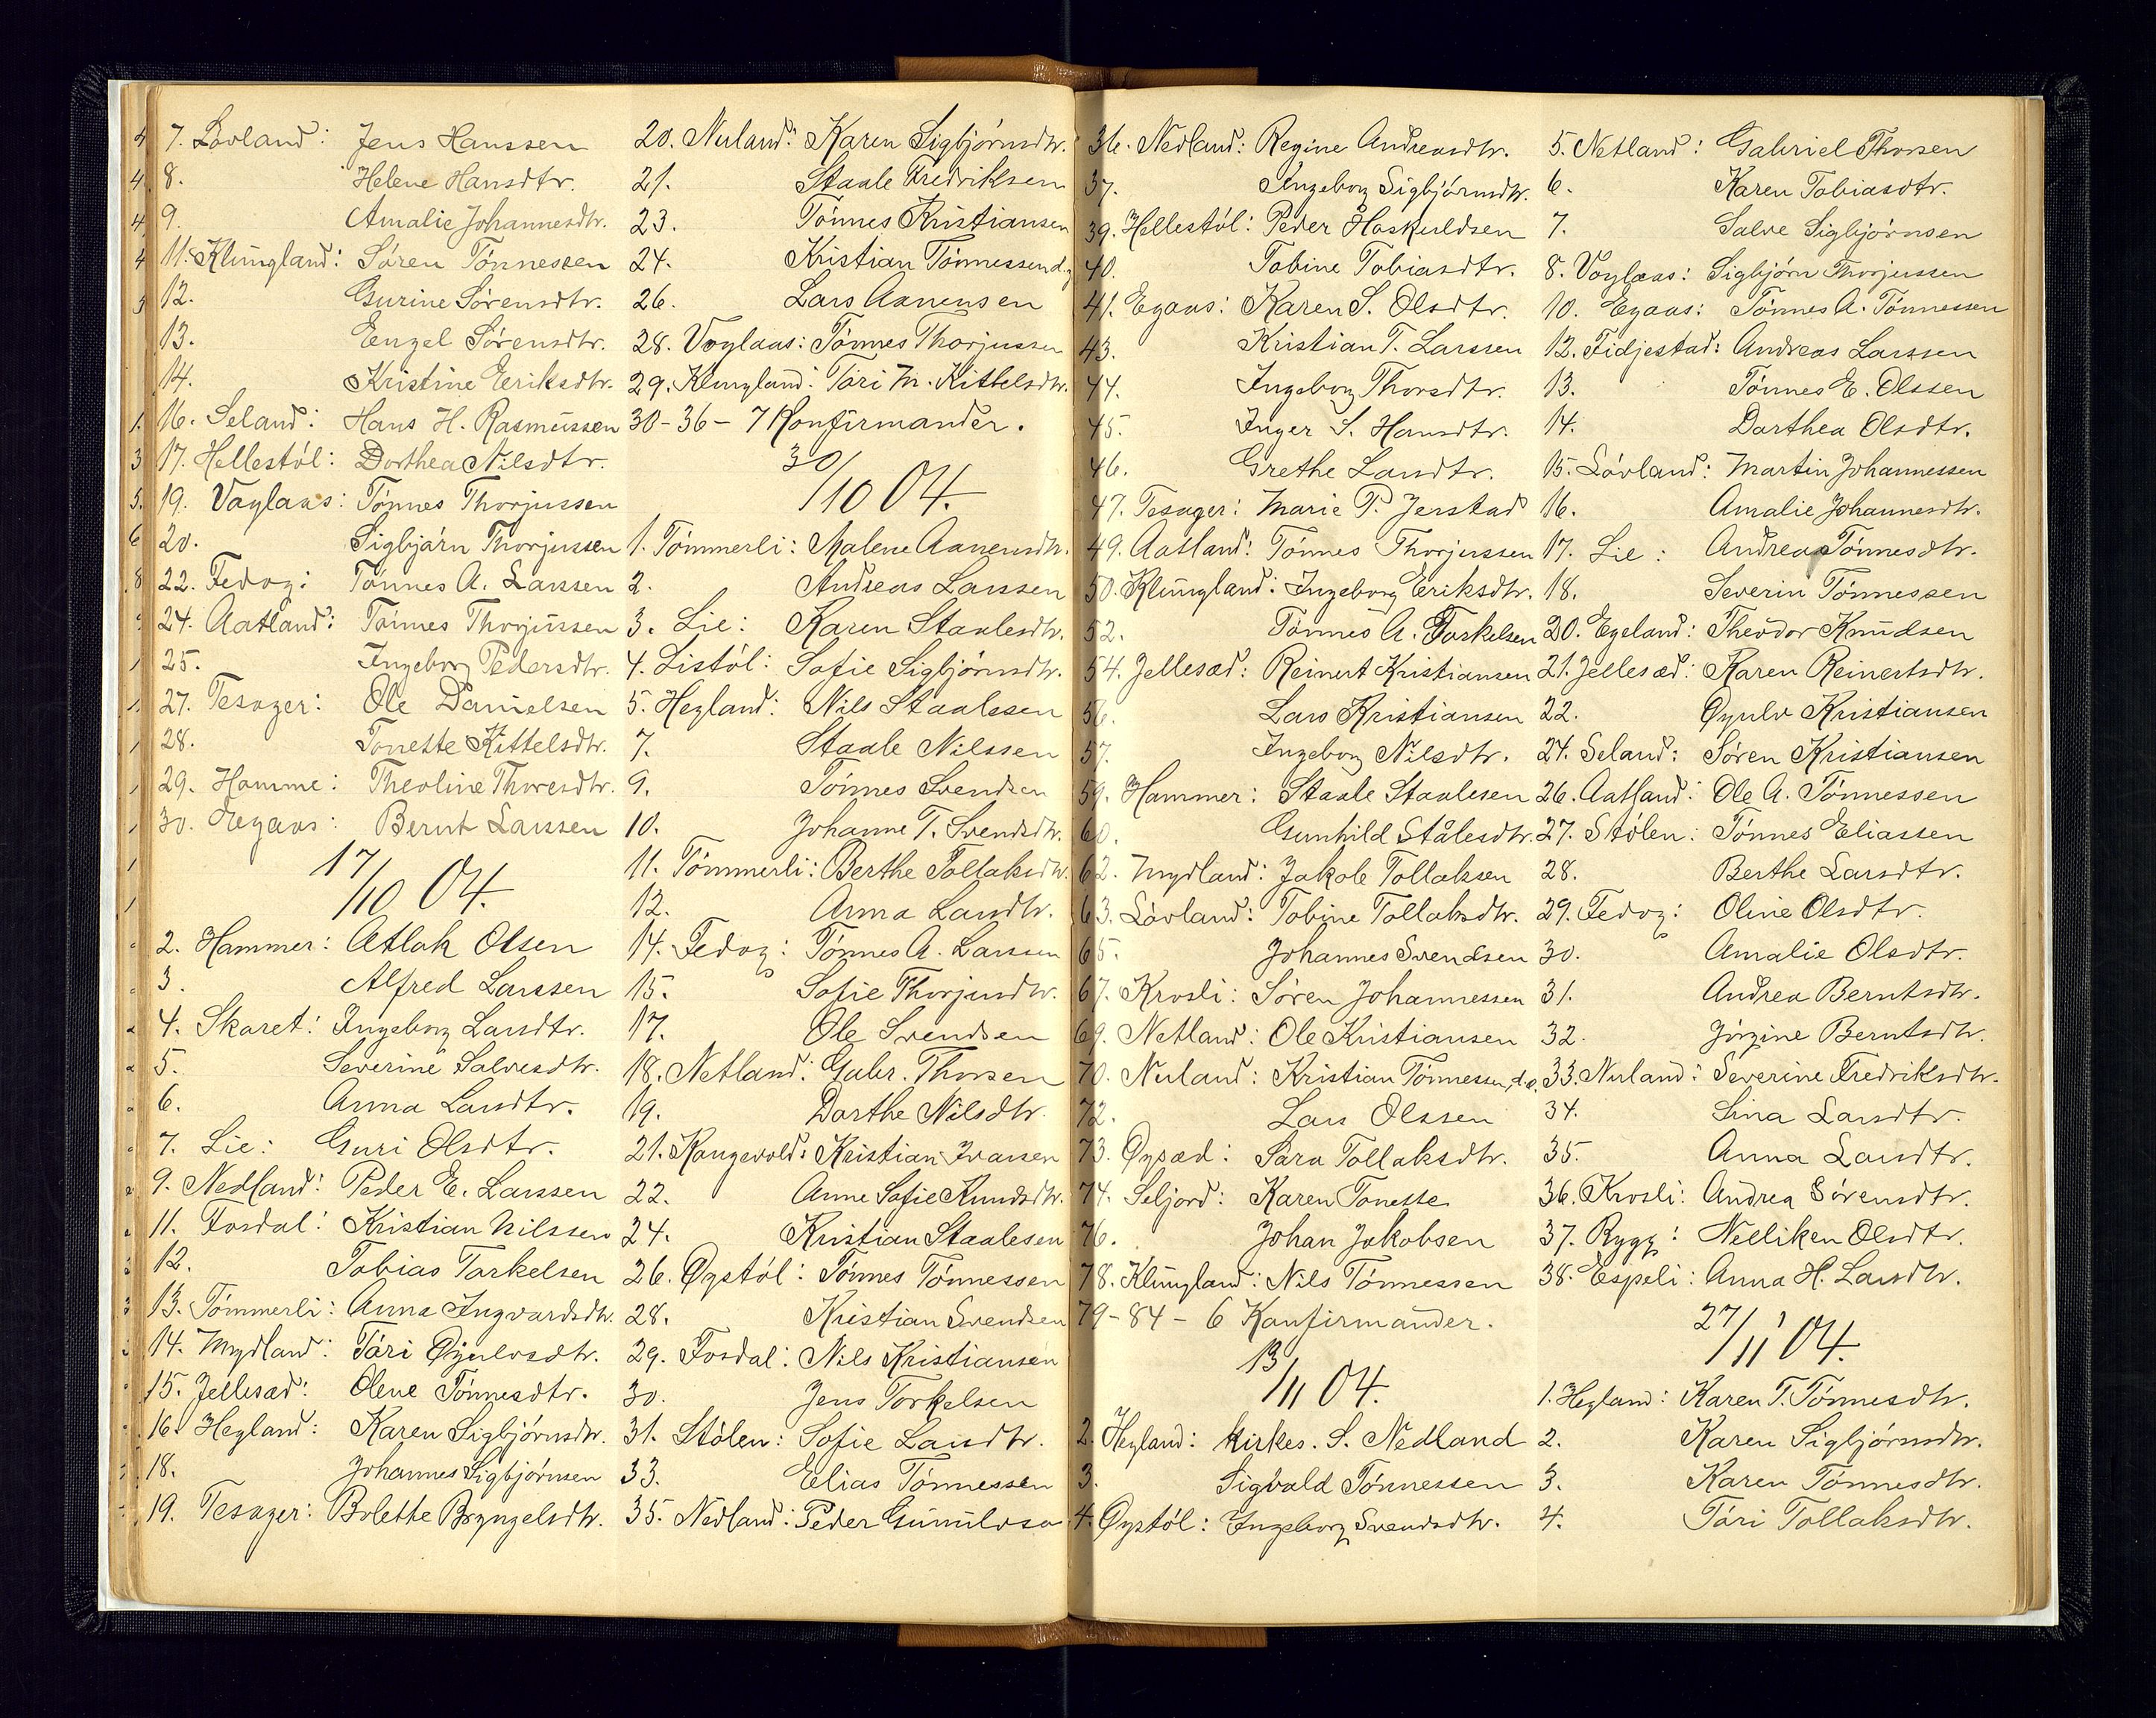 7. Lövland: Jens Hanssen
8. Helene Hansdtr.
9. Amalie Johannesdtr.
11. Klungland: Sören Tönnessen
12. Gurine Sörensdtr.
13. Engel Sörensdtr.
14. Kristine Eriksdtr.
16. Seland: Hans H. Rasmussen
17. Hellestöl: Dorthea Nilsdtr.
19. Vaglaas: Tönnes Thorjussen
20. Sigbjörn Thorjussen
22. Fedog: Tönnes A. Larssen
24. Aatland: Tönnes Thorjussen
25. Ingeborg Pedersdtr.
27. Tesager: Ole Danielsen
28. Tonette Kittelsdtr.
29. Hamme: Theoline Thoresdtr.
30. Egaas: Bernt Larssen
17/10 04.
2. Hammer: Atlak Olsen
3. Alfred Larssen
4. Skaret: Ingeborg Larsdtr.
5. Severine Salvesdtr.
6. Anna Larsdtr.
7. Lie: Guri Olsdtr.
9. Nedland: Peder E. Larssen
11. Fosdal: Kristian Nilssen
12. Tobias Tarkelsen
13. Tömmerli: Anna Ingvardsdtr.
14. Mydland: Töri Øynlvsdtr.
15. Jellesæd: Olene Tönnesdtr.
16. Hegland: Karen Sigbjörnsdtr.
18. Johannes Sigbjörnsen
19. Tesager: Bolette Bryngelsdtr.
20. Nuland: Karen Sigbjörnsdtr.
21. Staale Fredriksen
23. Tönnes Kristiansen
24. Kristian Tönnessen d.y
26. Lars Aanensen
28. Voglaas: Tönnes Thorjussen
29. Klungland: Töri M. Kittelsdtr.
30-36 - 7 Konfirmander.
30/10 04.
1. Tömmerli: Malene Aanensdtr.
2. Andreas Larssen
3. Lie: Karen Staalesdtr.
4. Listöl: Sofie Sigbjörnsdtr.
5. Hegland: Nils Staalesen
7. Staale Nilssen
9. Tönnes Svendsen
10. Johanne T. Svendsdtr.
11. Tömmerli: Berthe Tollaksdtr.
12. Anna Larsdtr.
14. Fedog: Tönnes A. Larssen
15. Sofie Thorjusdtr.
17. Ole Svendsen
18. Netland: Gabr. Thorsen
19. Dorthe Nilsdtr.
21. Rangevold: Kristian Ivarsen
22. Anne Sofie Knudsdtr.
24. Kristian Staalesen
26. Øystöl: Tönnes Tönnessen
28. Kristian Svendsen
29. Fosdal: Nils Kristiansen
30. Jens Torkelsen
31. Stölen: Sofie Larsdtr.
33. Elias Tönnessen
35. Nedland: Peder Gunulvse
36. Nedland: Regine Andreasdtr.
37. Ingeborg Sigbjörnsdtr.
39. Hellestöl: Peder Haskuldsen
40. Tobine Tobiasdtr.
41. Egaas: Karen S. Olsdtr.
43. Kristian T. Larssen
44. Ingeborg Thorsdtr.
45. Inger S. Hansdtr.
46. Grethe Larsdtr.
47. Tesager: Marie P. Jerstad
49. Aatland: Tönnes Thorjussen
50. Klungland: Ingeborg Eriksdtr.
52. Tönnes A. Torkelsen
54. Jellesæd: Reinert Kristiansen
56. Lars Kristiansen
57. Ingeborg Nilsdtr.
59. Hammer: Staale Staalesen
60. Gunhild Stålesdtr.
62. Mydland: Jakob Tollaksen
63. Lövland: Tobine Tollaksdtr.
65. Johannes Svendsen
67. Krosli: Sören Johannessen
69. Netland: Ole Kristiansen
70. Nuland: Kristian Tönnessen, d.e.
72. Lars Olssen
73. Øysæd: Sara Tollaksdtr.
74. Seljord: Karen Tonette
76. Johan Jakobsen
78. Klungland: Nils Tönnessen
79-84 - 6 Konfirmander.
13/11 04.
2. Hegland: Kirkes. S. Nedland
3. Sigvald Tönnessen
4. Øystöl: Ingeborg Svendsdtr.
5. Netland: Gabriel Thorsen
6. Karen Tobiasdtr.
7. Salve Sigbjörnsen
8. Voglaas: Sigbjörn Thorjussen
10. Egaas: Tönnes A. Tönnessen
12. Fidjestad: Andreas Larssen
13. Tönnes E. Olssen
14. Dorthea Olsdtr.
15. Lövland: Martin Johannessen
16. Amalie Johannesdtr.
17. Lie: Andrea Tönnesdtr.
18. Severin Tönnessen
20. Egeland: Theodor Knudsen
21. Jellesæd: Karen Reinertsdtr.
22. Øynlv Kristiansen
24. Seland: Sören Kristiansen
26. Aatland: Ole A. Tönnessen
27. Stölen: Tönnes Eliassen
28. Berthe Larsdtr.
29. Fedog: Oline Olsdtr.
30. Amalie Olsdtr.
31. Andrea Berntsdtr.
32. Jörgine Berntsdtr.
33. Nuland: Severine Fredriksdtr.
34. Lina Larsdtr.
35. Anna Larsdtr.
36. Krosli: Andrea Sörensdtr.
37. Rygg: Nelliken Olsdtr.
38. Espeli: Anna H. Larsdtr.
27/11 04.
1. Hegland: Karen T. Tönnesdtr.
2. Karen Sigbjörnsdtr.
3. Karen Tönnesdtr.
4. Töri Tollaksdtr.